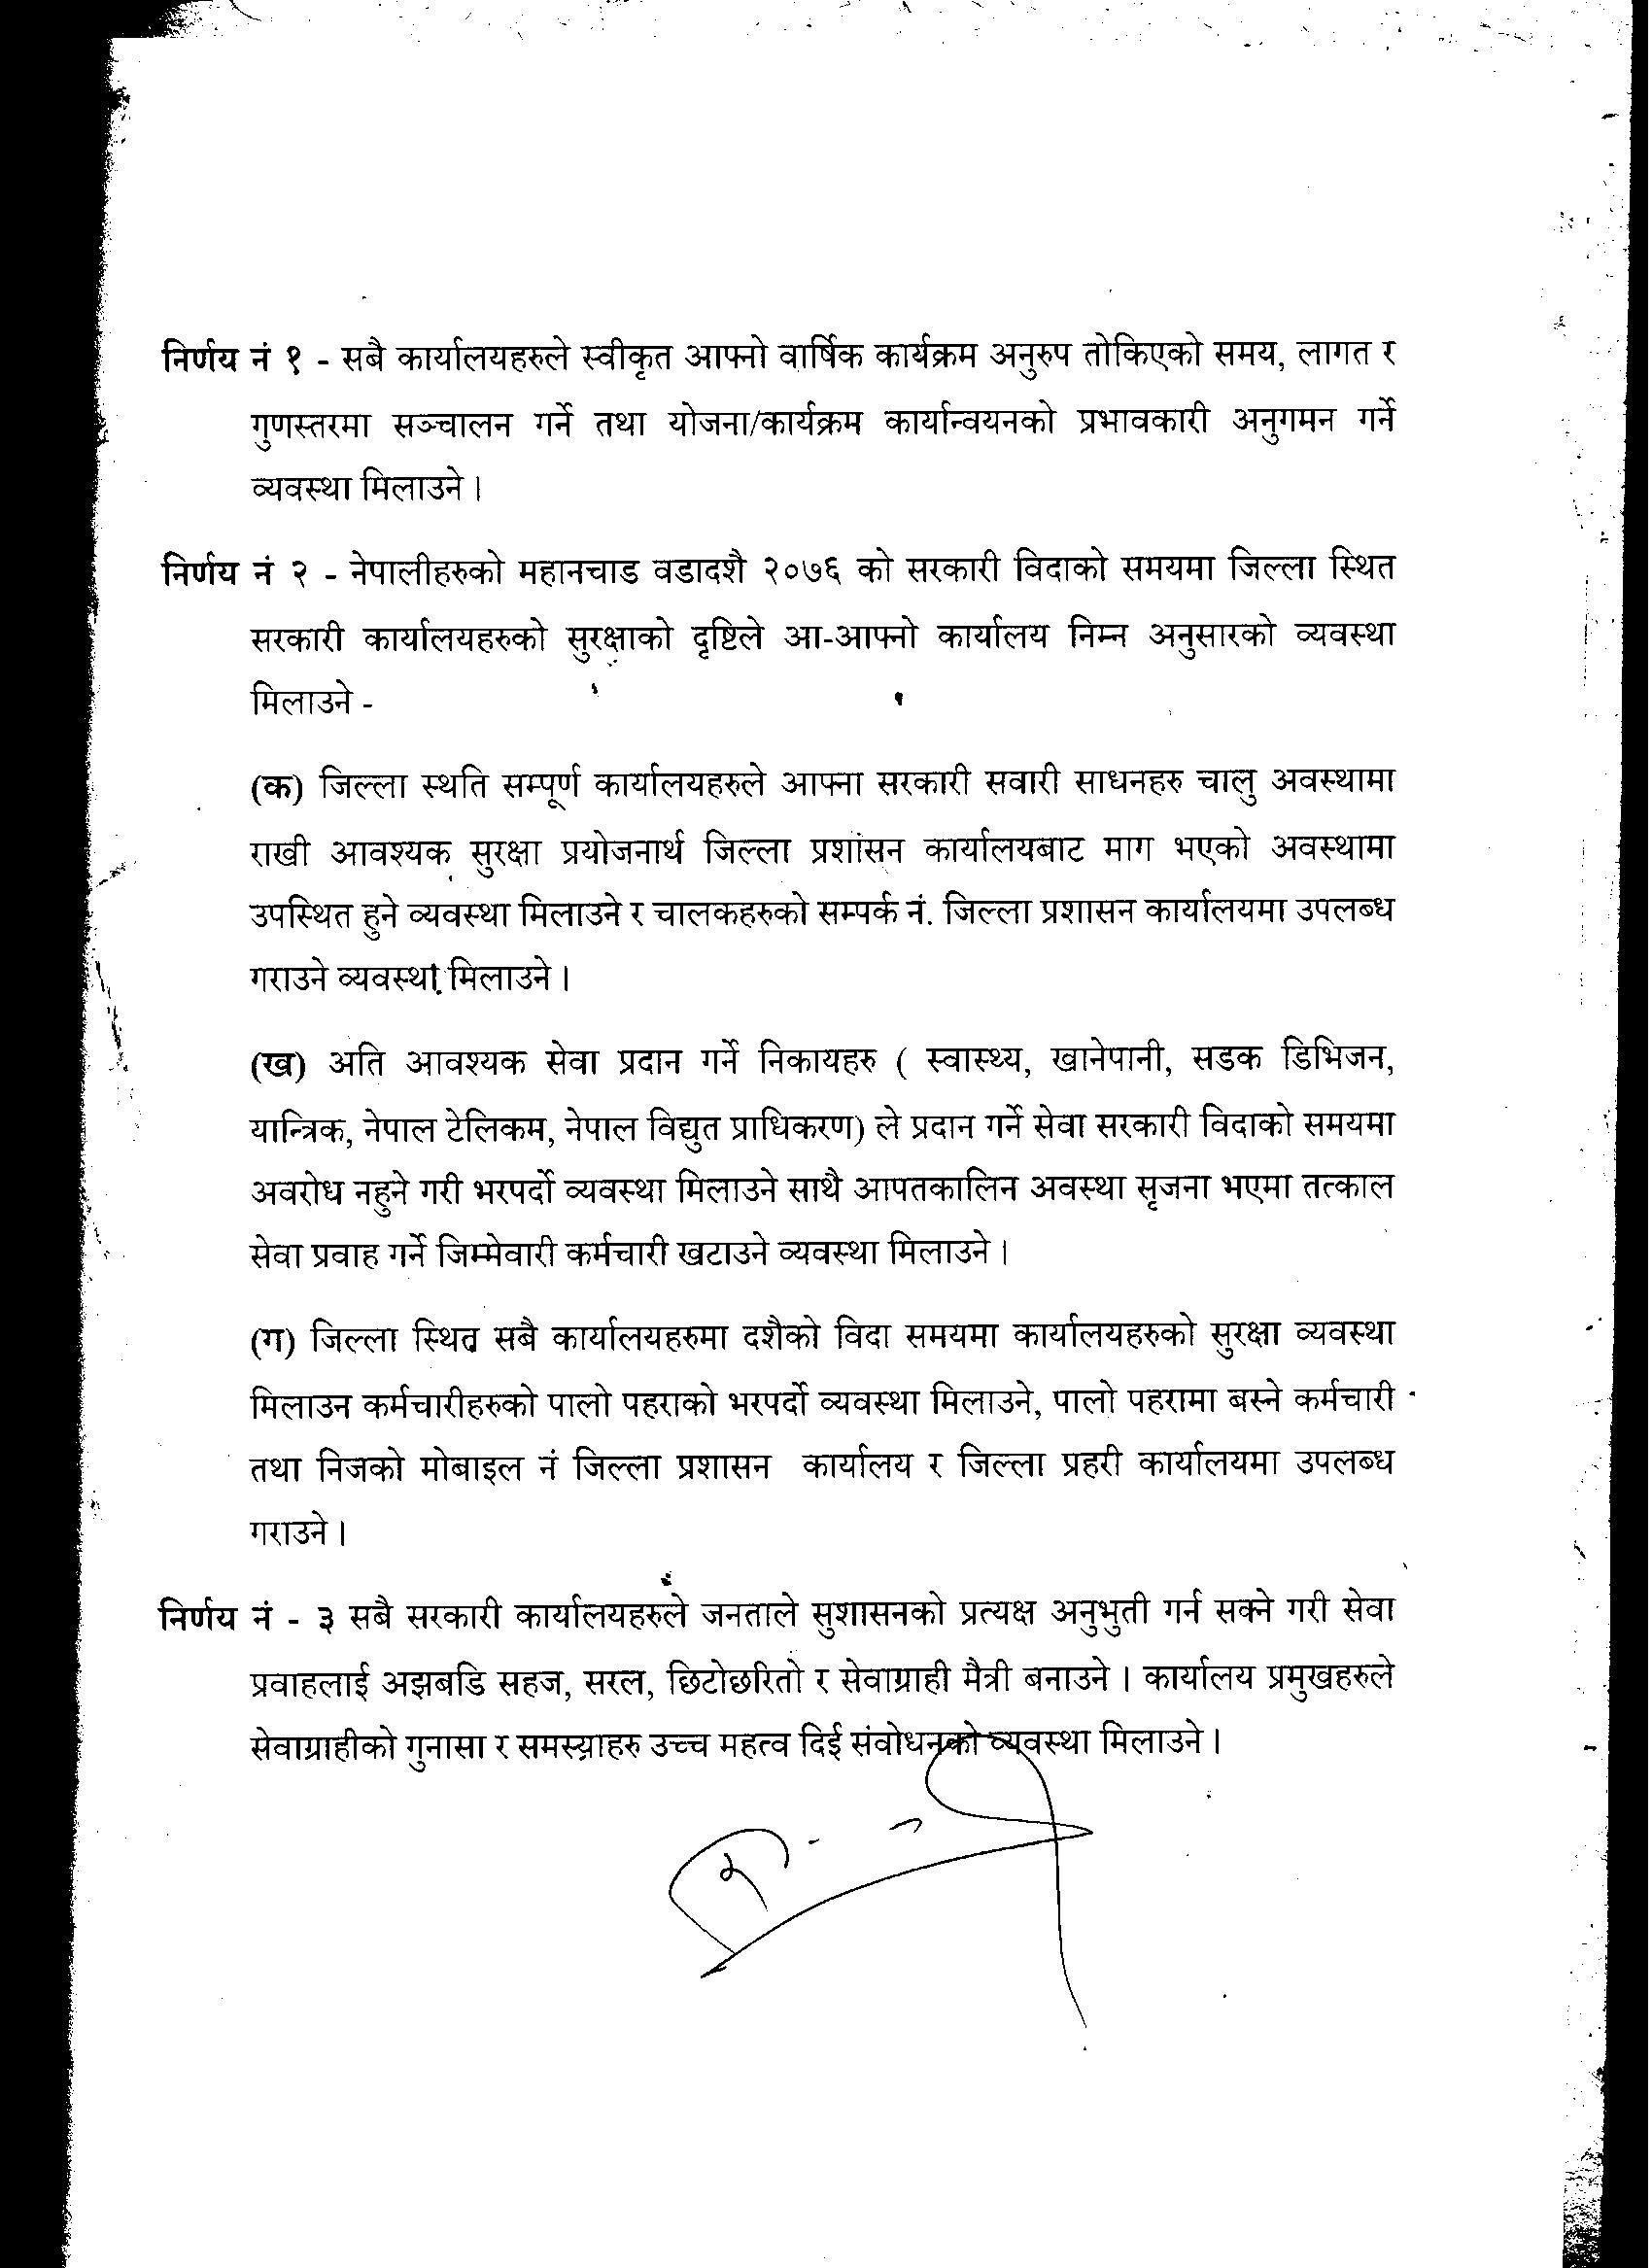 निर्णय नं १ - सबै कार्यालयहरुले स्वीकृत आफ्नो वार्षिक कार्यक्रम अनुरुप तोकिएको समय, लागत र
गुणस्तरमा सञ्चालन गर्ने तथा योजना/कार्यक्रम कार्यान्वयनको प्रभावकारी अनुगमन गर्ने
व्यवस्था मिलाउने ।
निर्णय नं २ - नेपालीहरुको महानचाड वडादशै २०७६ को सरकारी विदाको समयमा जिल्ला स्थित
सरकारी कार्यालयहरुको सुरक्षाको दृष्टिले आ-आफ्नो कार्यालय निम्न अनुसारको व्यवस्था
मिलाउने -
(क) जिल्ला स्थति सम्पूर्ण कार्यालयहरुले आफ्ना सरकारी सवारी साधनहरु चालु अवस्थामा
राखी आवश्यक सुरक्षा प्रयोजनार्थ जिल्ला प्रशासन कार्यालयबाट माग भएको अवस्थामा
उपस्थित हुने व्यवस्था मिलाउने र चालकहरुको सम्पर्क नं. जिल्ला प्रशासन कार्यालयमा उपलब्ध
गराउने व्यवस्था मिलाउने ।
(ख) अति आवश्यक सेवा प्रदान गर्ने निकायहरु ( स्वास्थ्य, खानेपानी, सडक डिभिजन,
यान्त्रिक, नेपाल टेलिकम, नेपाल विद्युत प्राधिकरण) ले प्रदान गर्ने सेवा सरकारी विदाको समयमा
अवरोध नहुने गरी भरपर्दो व्यवस्था मिलाउने साथै आपतकालिन अवस्था सृजना भएमा तत्काल
सेवा प्रवाह गर्ने जिम्मेवारी कर्मचारी खटाउने व्यवस्था मिलाउने ।
(ग) जिल्ला स्थित सबै कार्यालयहरुमा दशैको विदा समयमा कार्यालयहरुको सुरक्षा व्यवस्था
मिलाउन कर्मचारीहरुको पालो पहराको भरपर्दो व्यवस्था मिलाउने, पालो पहरामा बस्ने कर्मचारी
तथा निजको मोबाइल नं जिल्ला प्रशासन कार्यालय र जिल्ला प्रहरी कार्यालयमा उपलब्ध
गराउने ।
निर्णय नं - ३ सबै सरकारी कार्यालयहरुले जनताले सुशासनको प्रत्यक्ष अनुभुती गर्न सक्ने गरी सेवा
प्रवाहलाई अझबडि सहज, सरल, छिटोछरितो र सेवाग्राही मैत्री बनाउने । कार्यालय प्रमुखहरुले
सेवाग्राहीको गुनासा र समस्याहरु उच्च महत्व दिई संवोधनको व्यवस्था मिलाउने ।